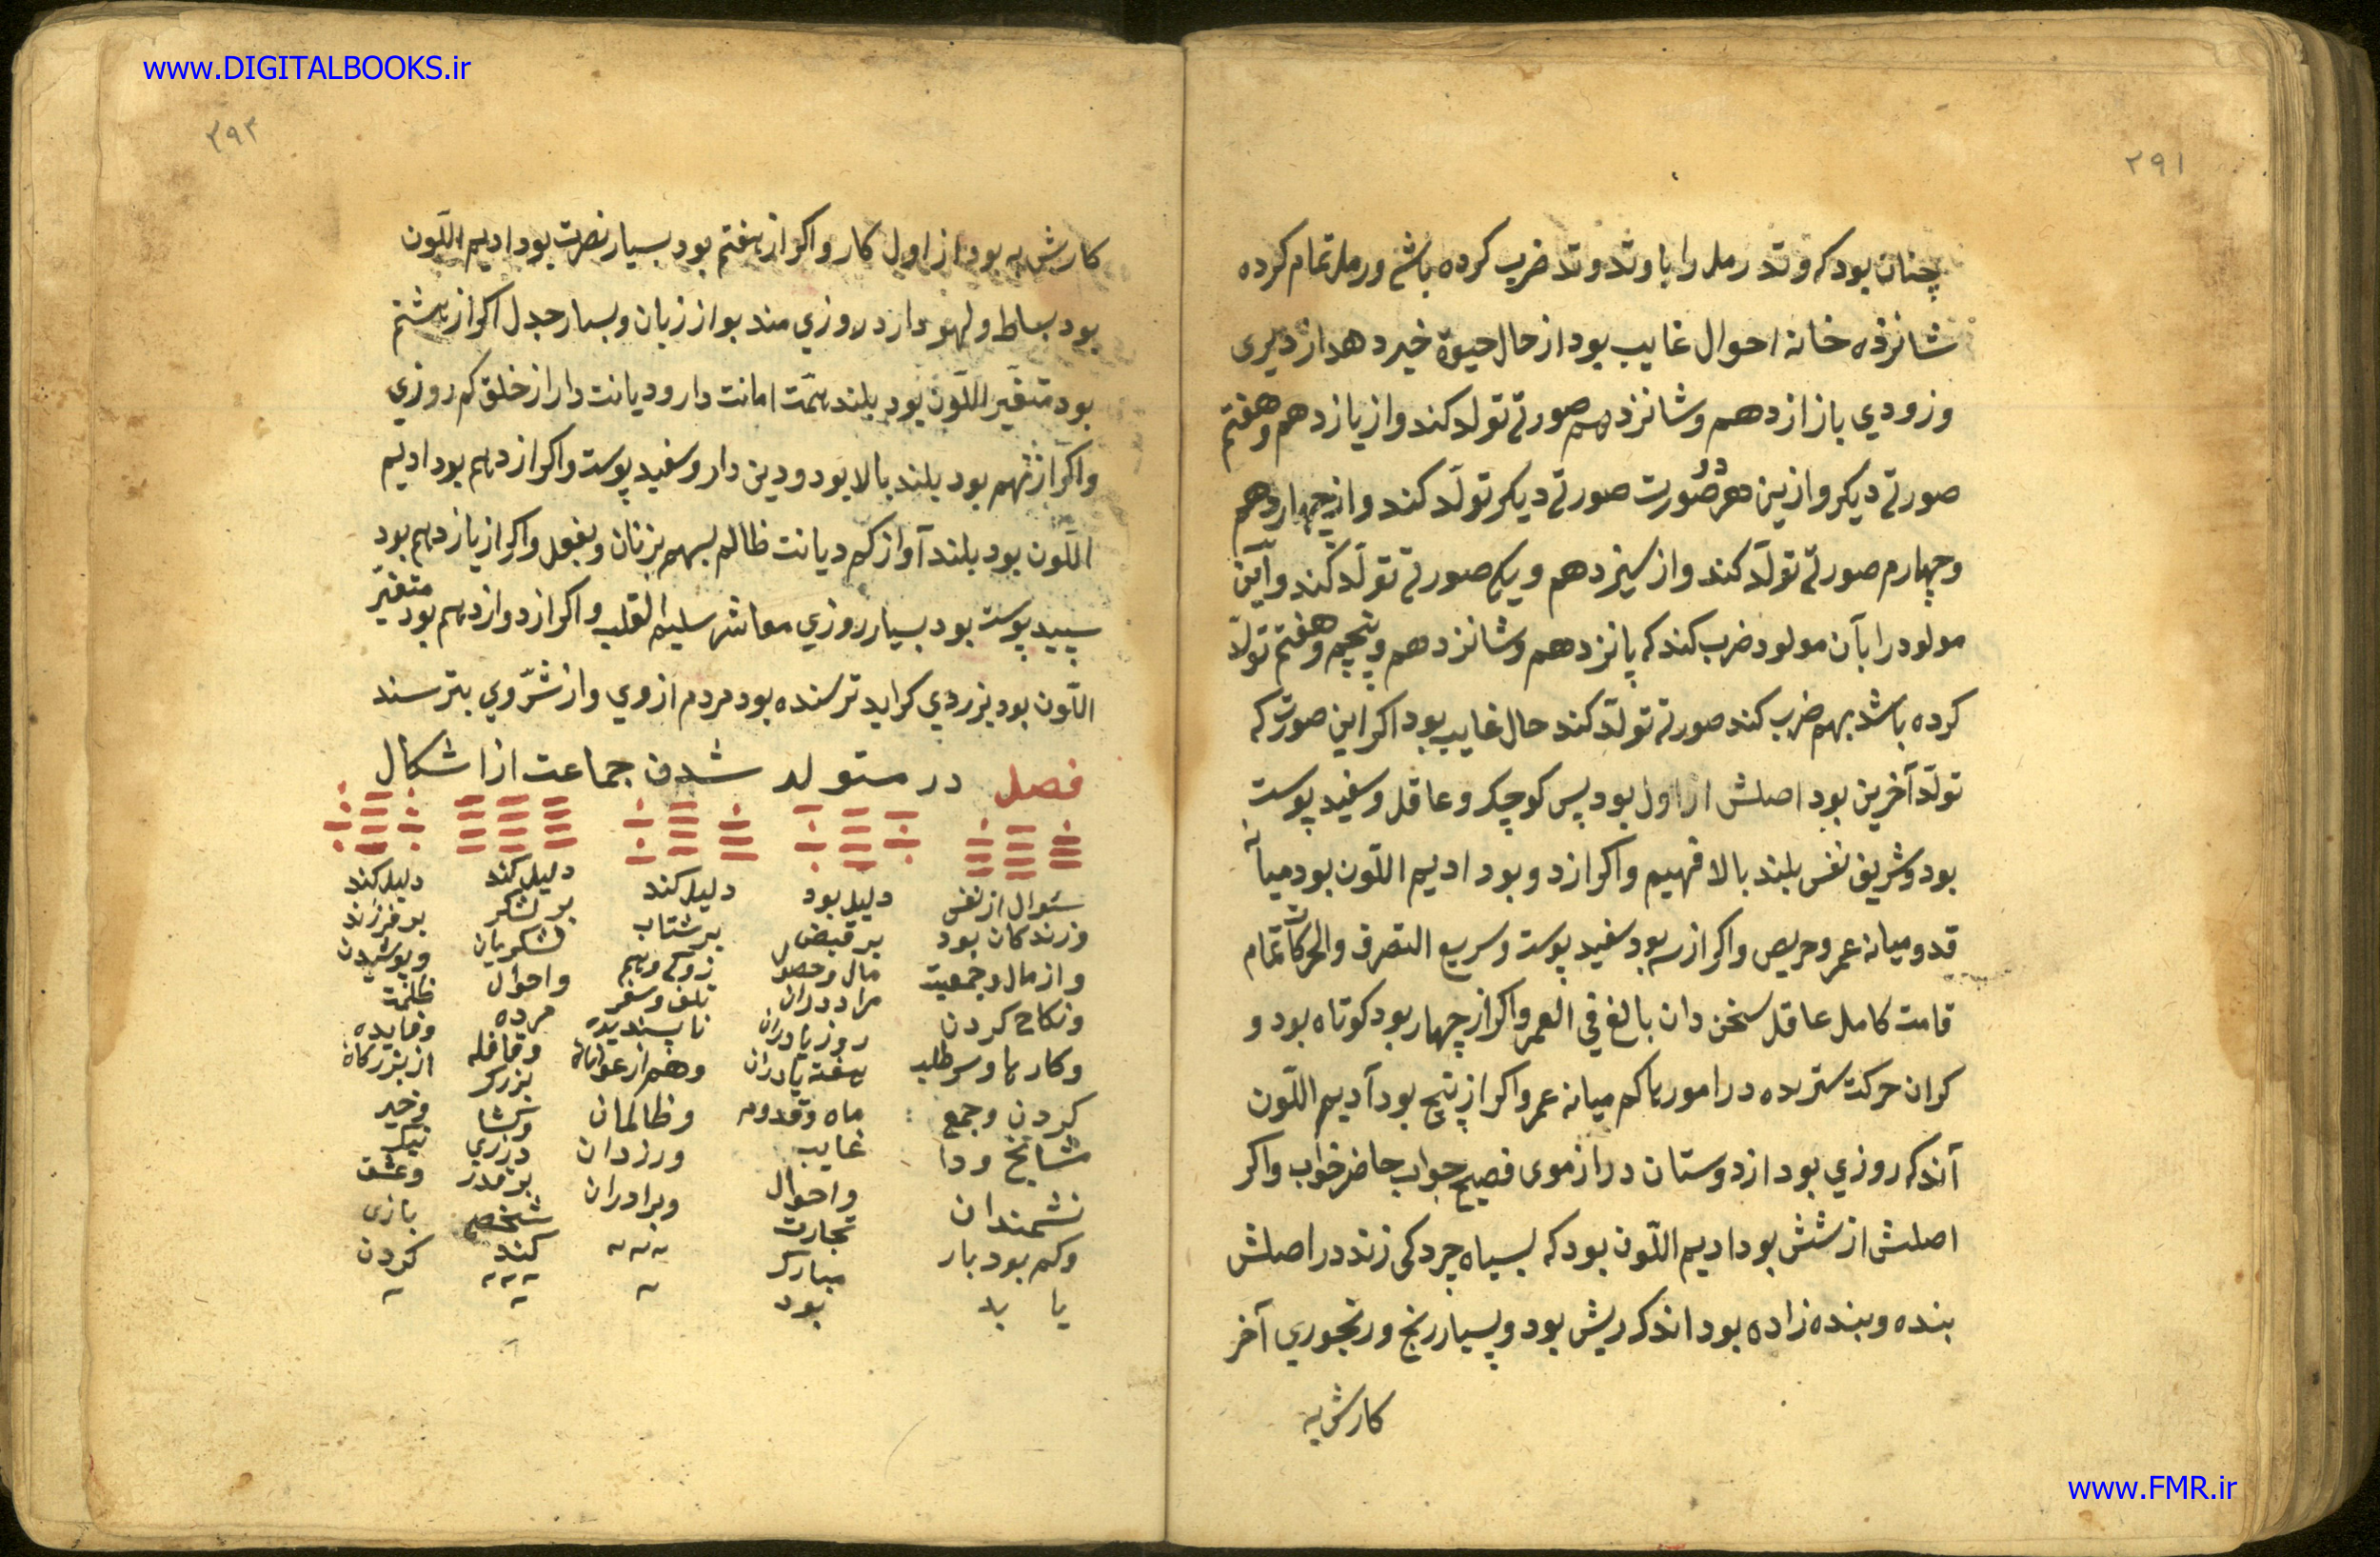 www.DIGITALBOOKS.ir
۲۹۱
چنان بود که وتد رمل را با وتد وتد ضرب کرده باشم ورمل تمام کرده
شانزده خانه احوال غایب بود از حال حیوة خبر دهد از دیری
وزودی باز از دهم وشانزدهم صورتی تولد کند واز یازدهم وهفتم
صورتی دیکر وازین هر دو صورت صورتی دیکر تولّد کند واز چهاردهم
وچهارم صورتی تولّد کند واز سیزدهم ویکم صورتی تولّد کند وآین
مولود را بآن مولود ضرب کند که پانزدهم وشانزدهم وپنجم وهفتم تولّد
کرده باشد بهم ضرب کند صورتی تولّد کند حال غایب بود اکر این صورت که
تولّد آخرین بود اصلش از اول بود پس کوچک وعاقل وسفید پوست
بود وشریف نفس بلند بالا فهیم واکر از دو بود ادیم اللّون بود میانه
قد ومیانه عمر وحریص واکر از سه بود سفید پوست وسریع التصرف والحرکات تمام
قامت کامل عاقل سخن دان بالغ فی العمر واکر از چهار بود کوتاه بود و
کران حرکت ستریده در امورها کم میانه عمر واکر از پنج بود آدیم اللّون
آندک روزی بود از دوستان دراز موی فصیح جواب حاضر خواب واکر
اصلش از شش بود ادیم اللّون بود که بسیاه چردکی زند در اصلش
بنده وبنده زاده بود اندک ریش بود وبسیار رنج ورنجوری آخر
کارش به
۲۹۳
کارش به بود از اول کار واکر از هفتم بود بسیار نصرت بود ادیم اللّون
بود بساط ولهو دارد روزی مند بود از زبان وبسیار جدل اکر از هشتم
بود متغیّر اللّون بود بلند همّت امانت دار ودیانت دار از خلق کم روزی
واکر از نهم بود بلند بالا بود ودین دار وسفید پوست واکر از دهم بود ادیم
اللّون بود بلند آواز کم دیانت ظالم بسهم بزنان وبفعل واکر از یازدهم بود
سپید پوست بود بسیار روزی معاشر سلیم القلب واکر از دوازدهم بود متغیّر
اللّون بود بزردی کراید ترسنده بود مردم از وی واز شرّ وی بترسند
فصل در متولد شدن جماعت از اشکال
سئوال از نفس
وزندکان بود
واز مال وجمعیت
ونکاح کردن
وکارها وسر طلب
کردن وجمع
مشایخ ودا
نشمندان
وکم بود بار
یا بد
دلیل بود
بر قبض
مال وحصول
مراد دوران
روز یا دوران
هفته یا دوران
ماه وقدوم
غایب
واحوال
تجارت
مبارک
بود
دلیل کند
بر شتاب
زدکی وبیم
تلف وسفر
ناپسندیده
وهم از عوانان
وظالمان
ودزدان
وبرادران
دلیل کند
بر لشکر
لشکریان
واحوال
مرده
وقافله
بزرک
بر قدر
شخصی
کند
دلیل کند
بر فرزند
وپوشیدن
وفایده
از بزرکان
وخیر
نیک
وعشق
بازی
کردن
www.FMR.ir